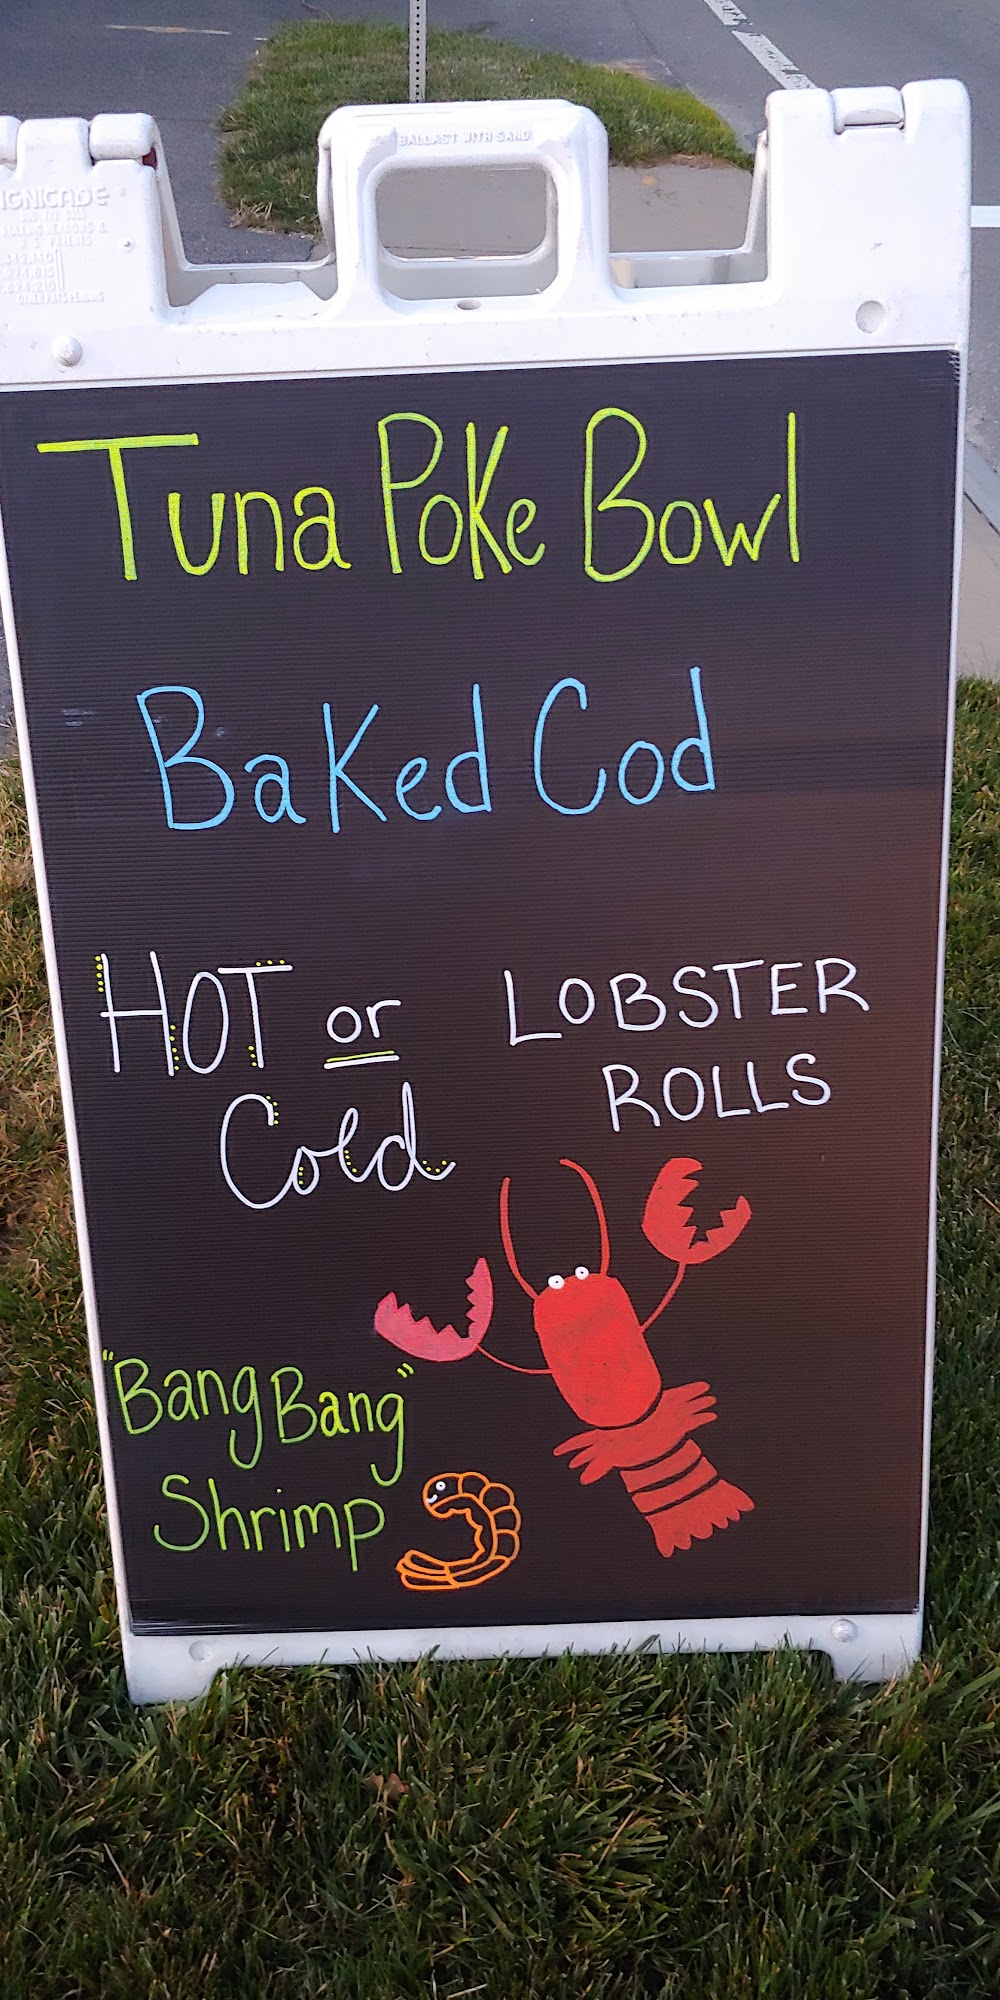 BALLAST WITH SAND
Tuna Poke Bowl
Baked Cod
HOT or
Cold
LOBSTER
ROLLS
"Bang Bang"
Shrimp